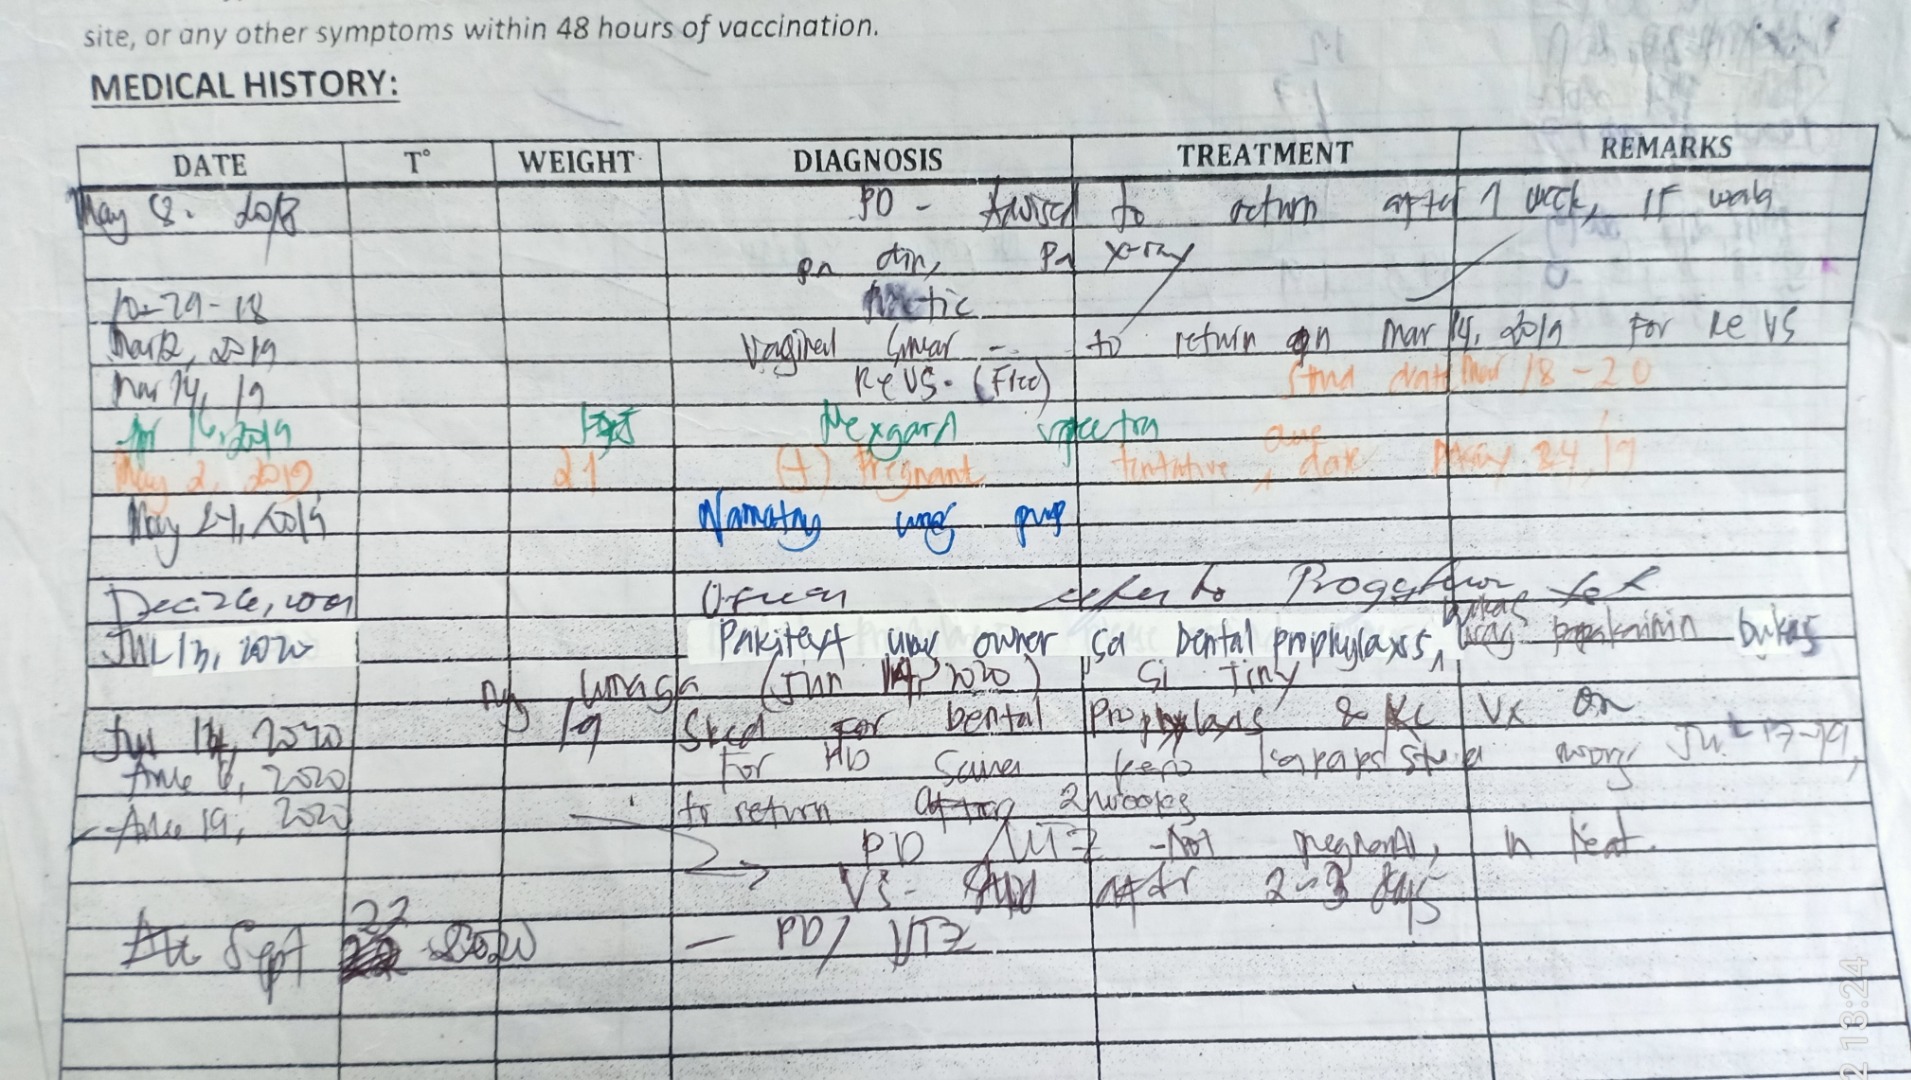 site, or any other symptoms within 48 hours of vaccination.
MEDICAL HISTORY:
DATE T° WEIGHT DIAGNOSIS TREATMENT REMARKS
May 8. 2018 PD - Advised to return after 1 week, IF wala
pa din, Pa X-ray
10-29-18
Mar 12, 2019 Vaginal Smear - to return on Mar 14, 2019 For Re VS
Mar 14, 19 Re VS. (Free) Stud date Mar 18-20
Apr 16, 2019 Nexgard spectra
May 2, 2019 21 (+) Pregnant tentative due date May 24, 19
May 24, 2019 Namatay ung pup
refer to
JUL 13, 2020 Pakitext ung owner sa dental prophylaxis, bukas
ng umaga (Jun 14, 2020) Si Tiny
Jul 14, 2020 19 Sked For Dental Prophylaxis & KC Vx on
6, 2020 For HD Jul 17-19,
19, 2020 to return after 2 weeks
PD / UTZ - Not pregnant, in heat.
VS - Stud after 2-3 days
Sept 22 2020 - PD / UTZ